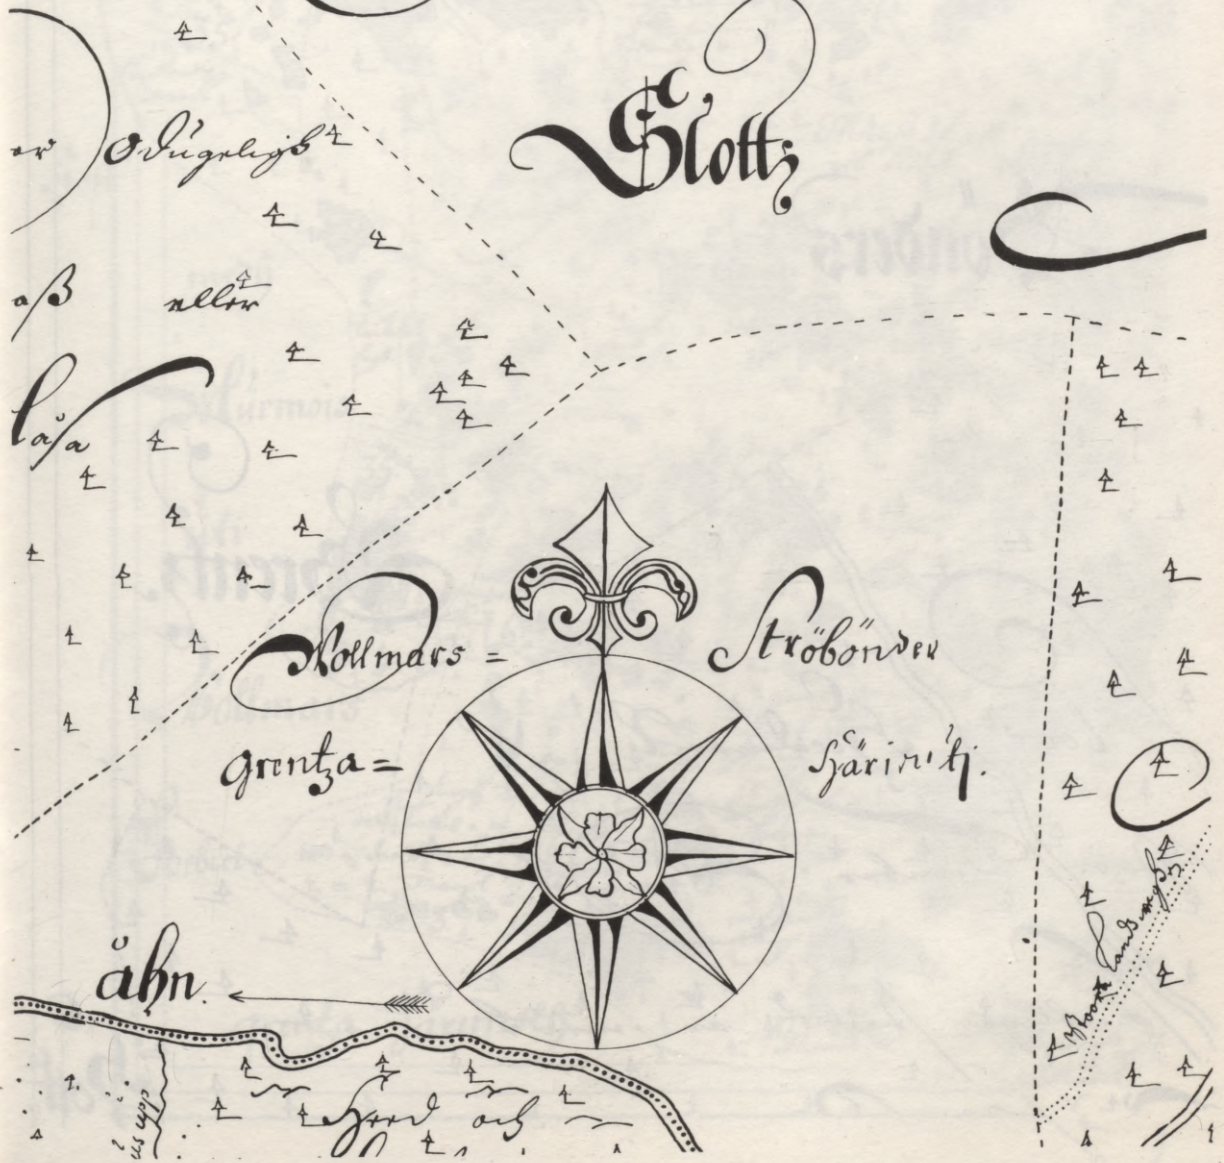 Slottz
odugeligh
aß eller
låsa
Wollmars =
Ströbönder
grentza =
Häri
åhn.
Stoora Landzwäghen
och